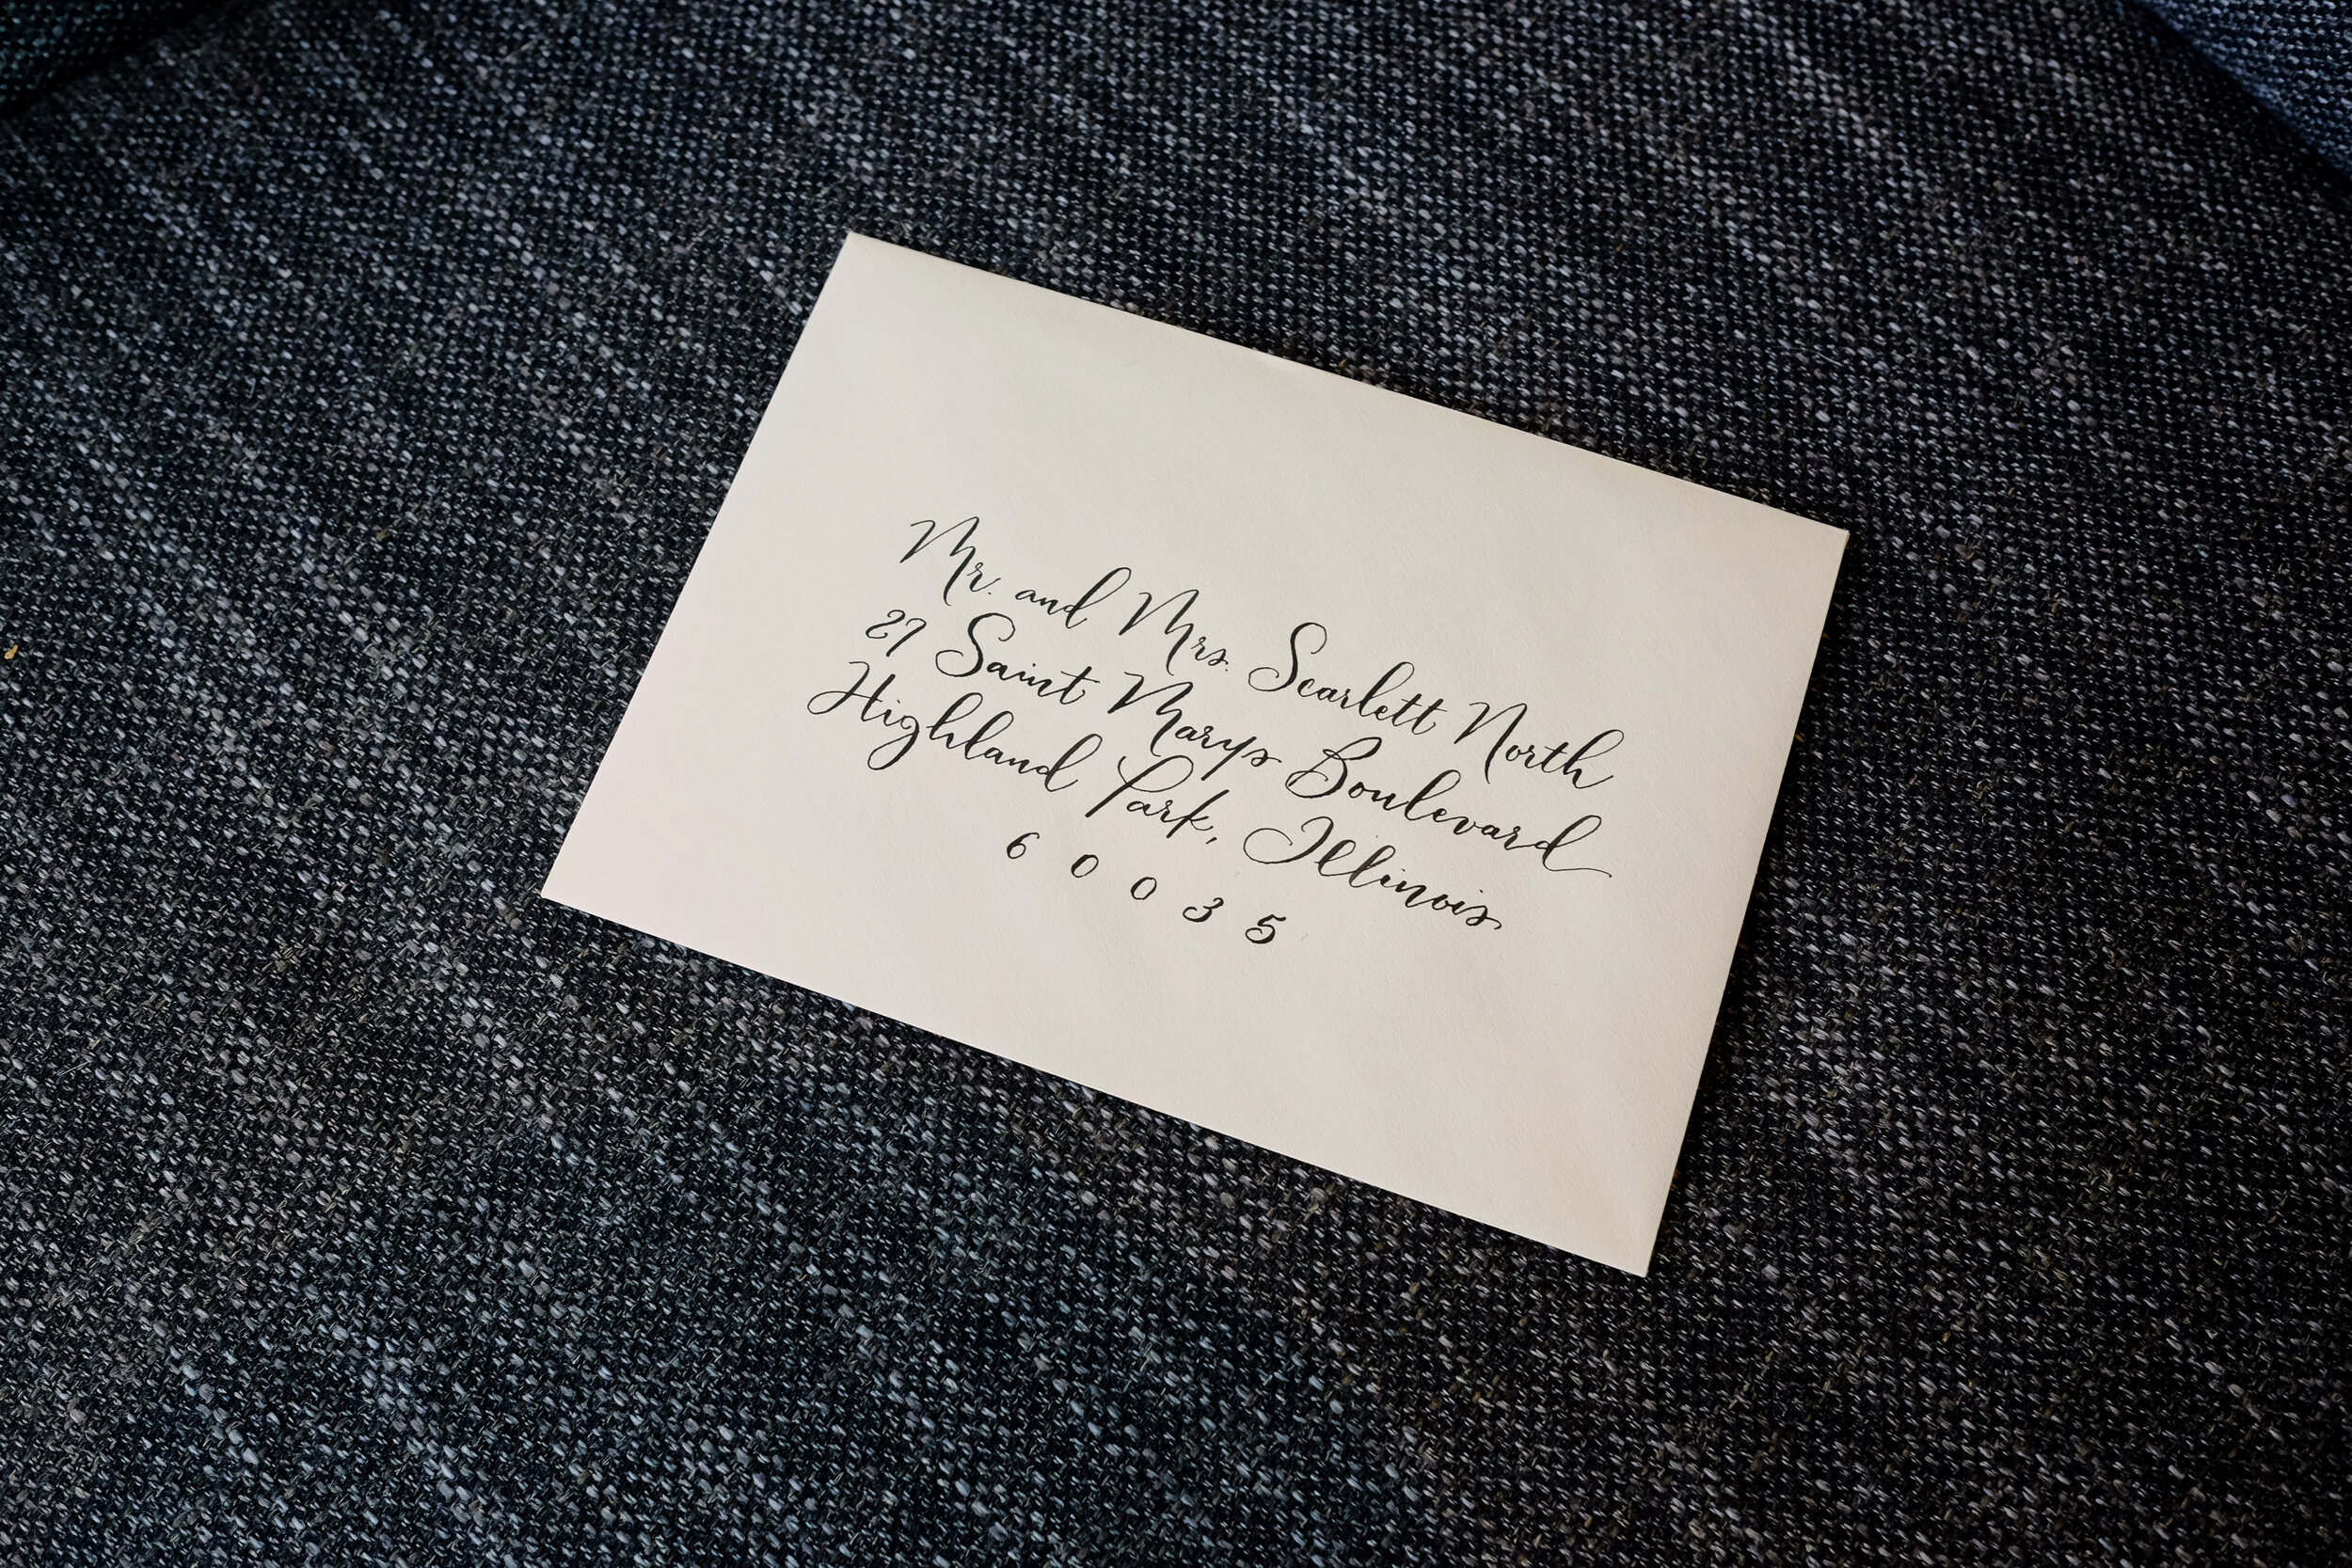 Mr. and Mrs. Scarlett North
27 Saint Marys Boulevard
Highland Park, Illinois
6 0 0 3 5